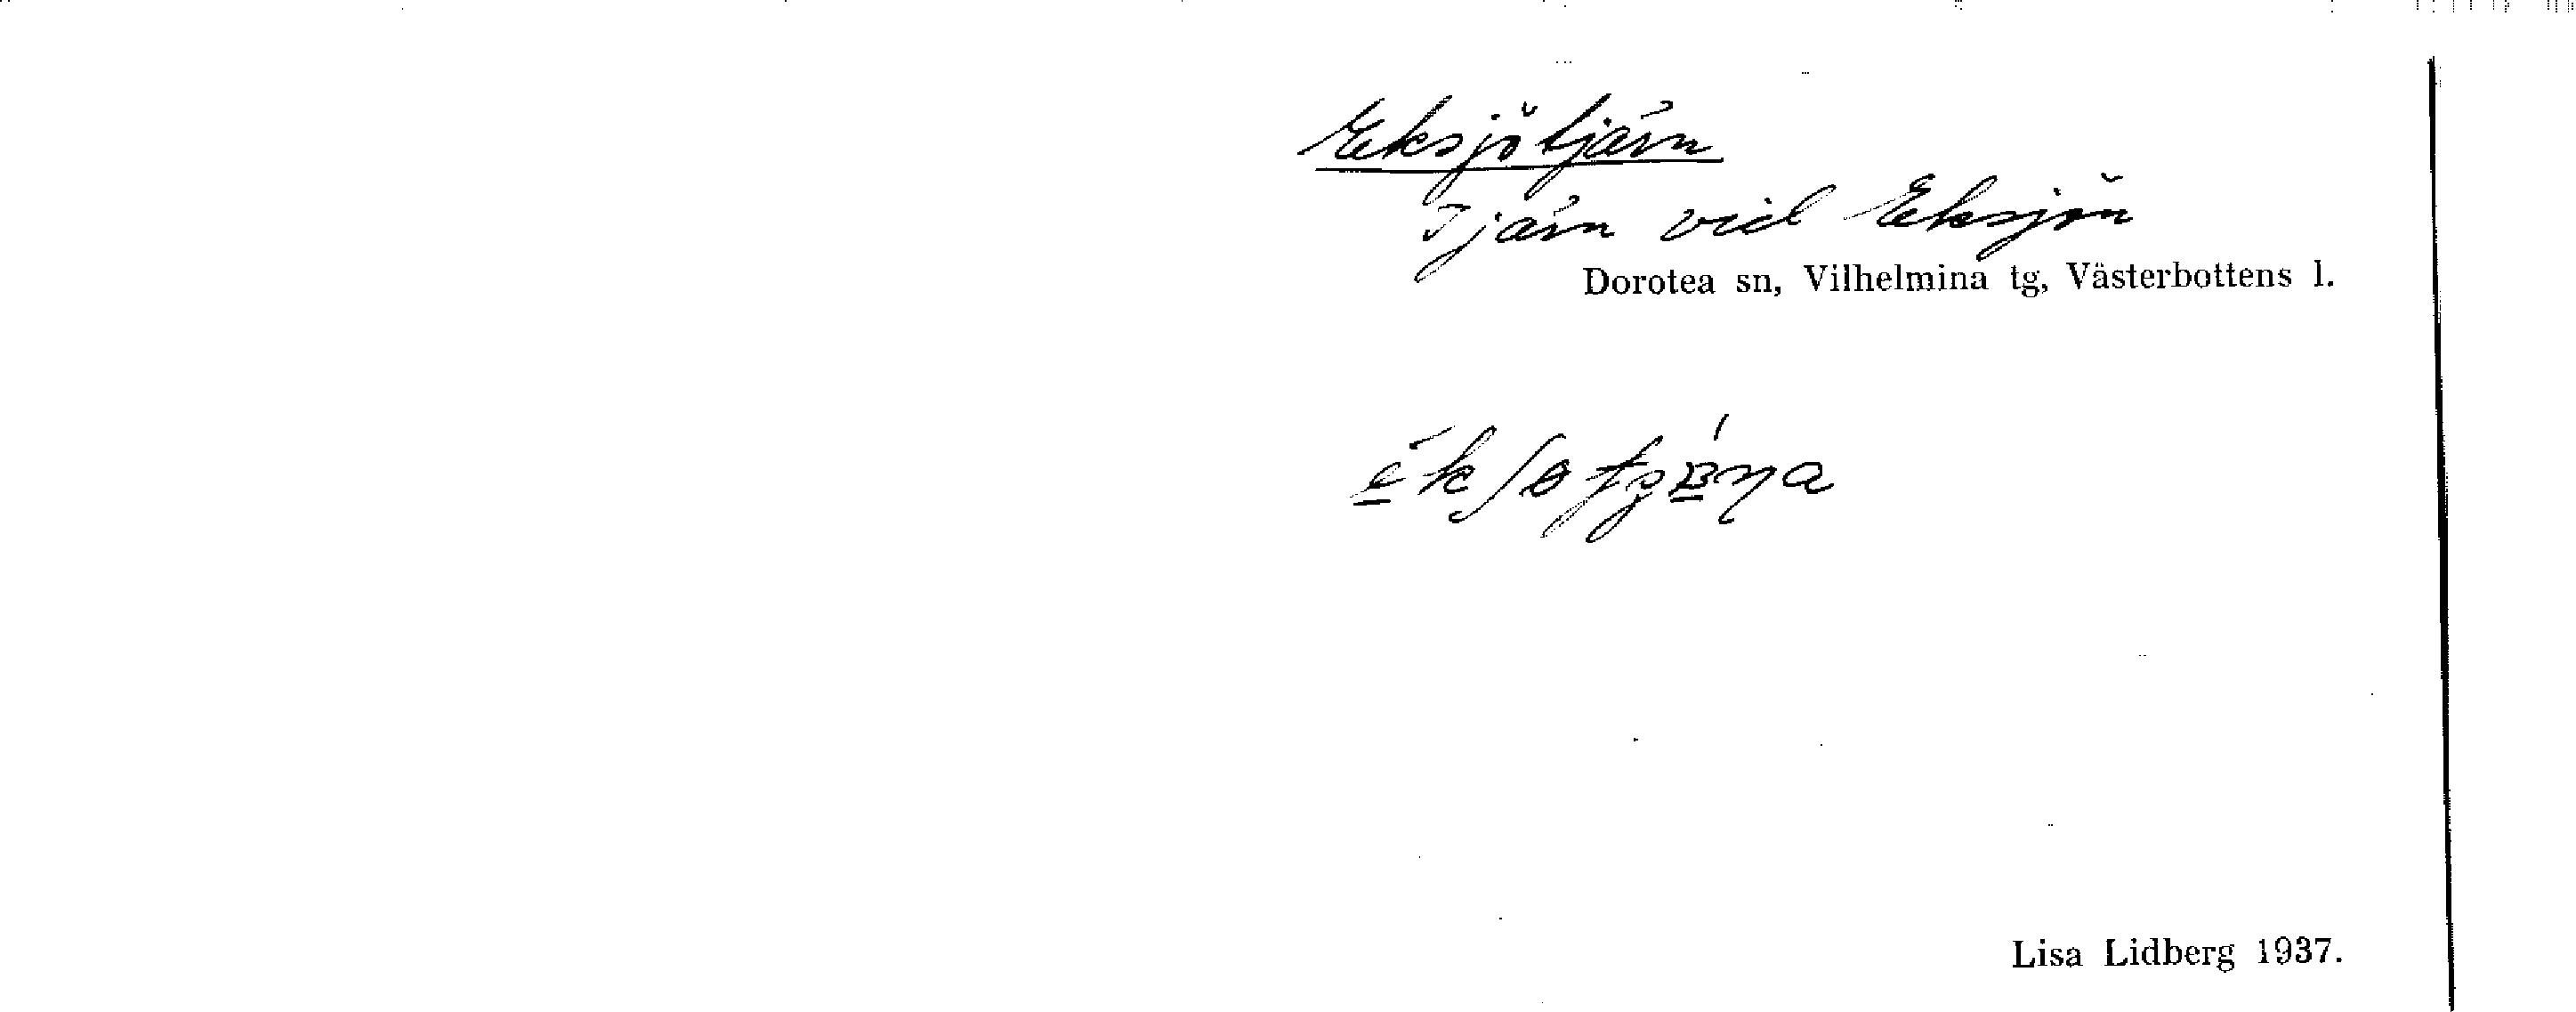 Eksjötjärn
Tjärn vid Eksjön
Dorotea sn, Vilhelmina tg, Västerbottens l.
Lisa Lidberg 1937.